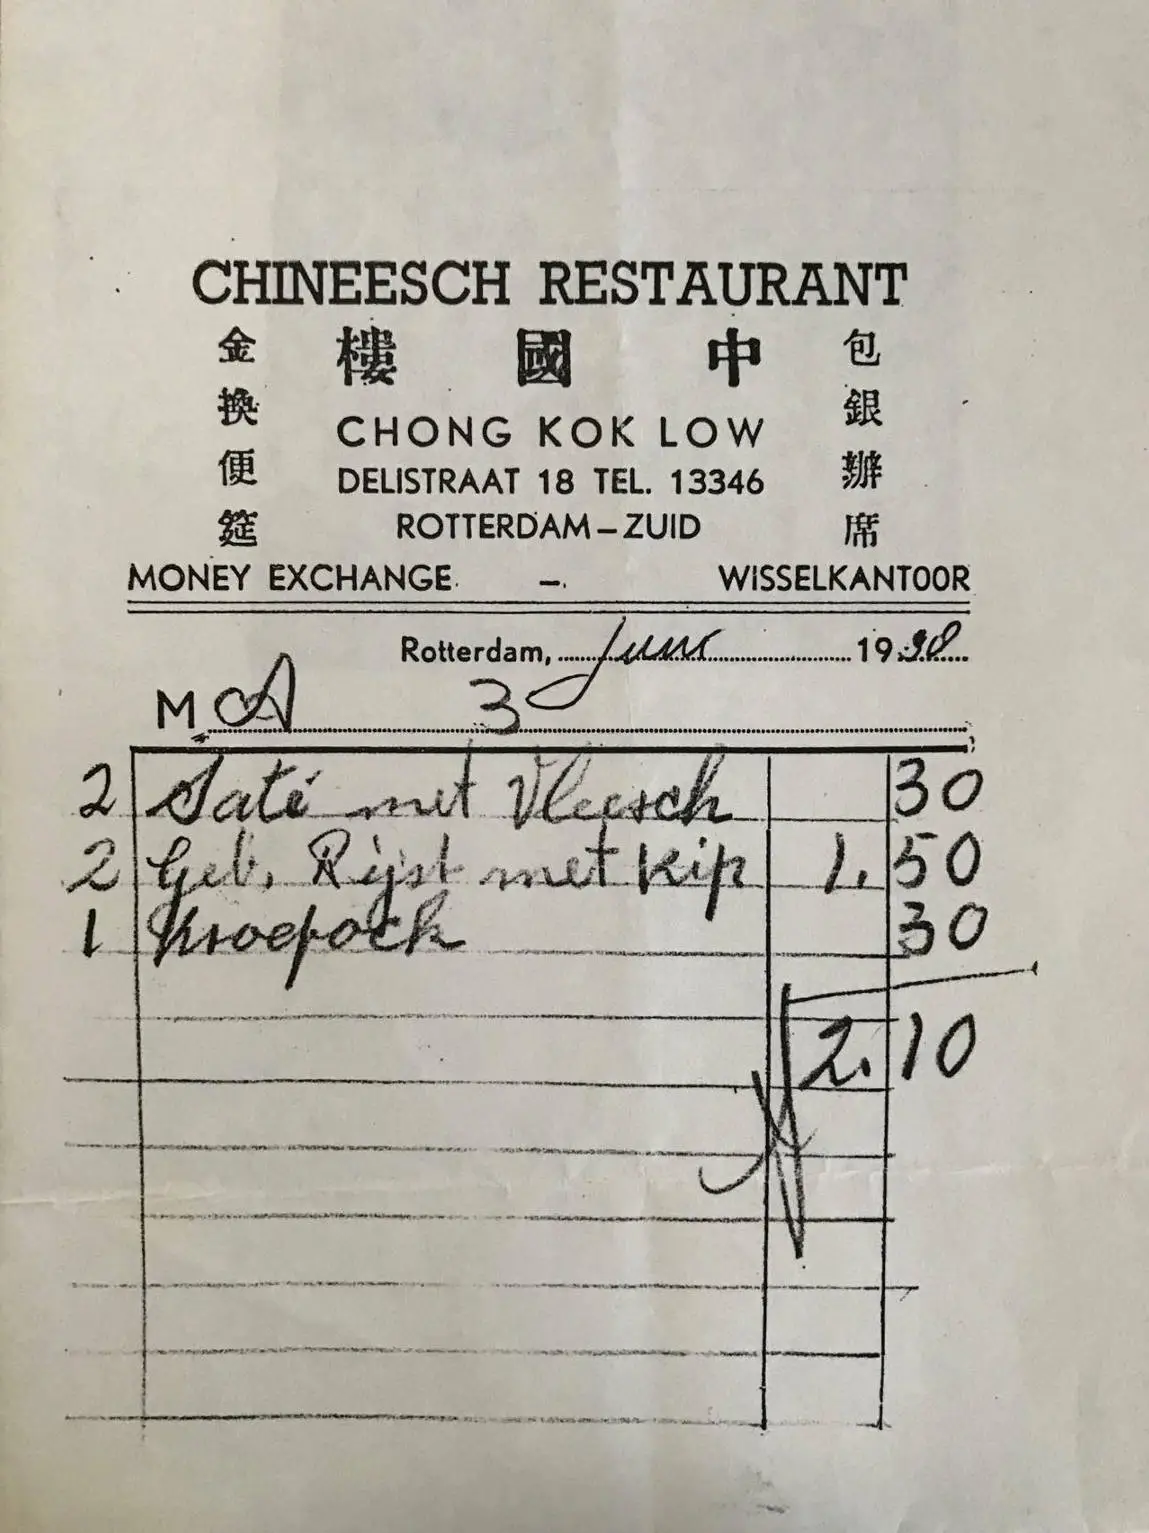 CHINEESCH RESTAURANT
樓國中
金換便筵
包銀辦席
CHONG KOK LOW
DELISTRAAT 18 TEL. 13346
ROTTERDAM – ZUID
MONEY EXCHANGE – WISSELKANTOOR
Rotterdam, Juni 1938
M A 3
2 Saté met Vleesch 30
2 Geb. Rijst met Kip 1.50
1 Kroepock 30
2.10